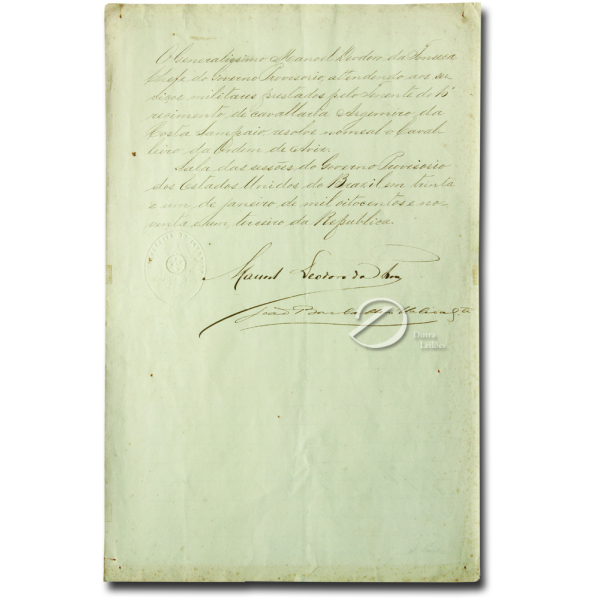 O Generalissimo Manoel Deodoro da Fonseca
Chefe do Governo Provisorio, attendendo aos ser
viços militares prestados pelo Tenente do
regimento de cavallaria Argemiro da
Costa Sampaio resolve nomeal-o Caval
leiro da Ordem de Aviz.
Sala das sessões do Governo Provisorio
dos Estados Unidos do Brazil em trinta
e um de janeiro de mil oitocentos e no
venta e um terceiro da Republica.
Manoel Deodoro da
Dutra
Leilões